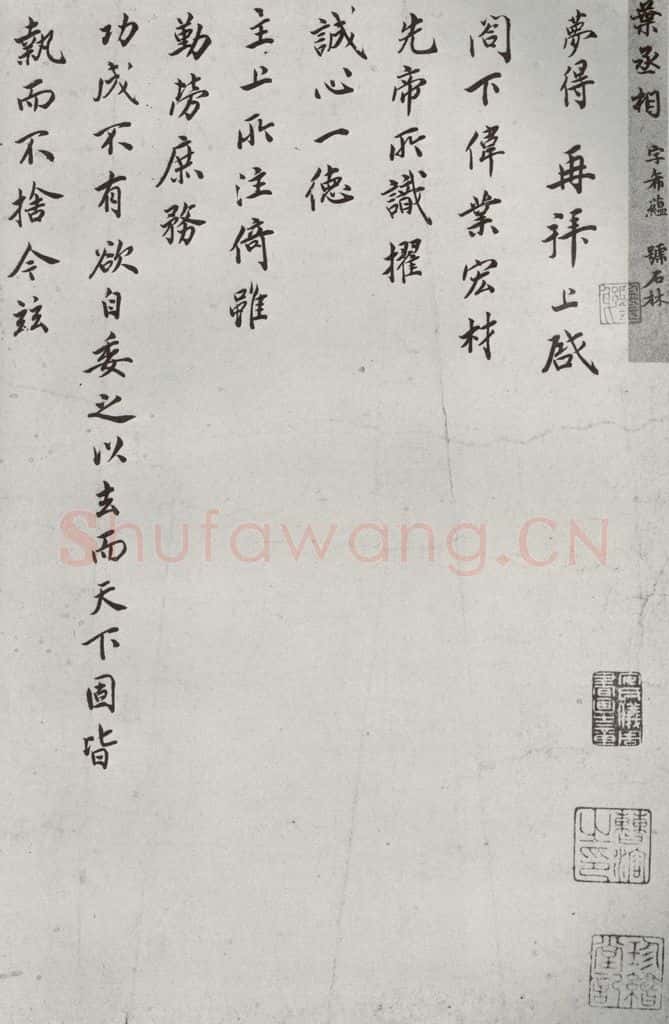 葉丞相 字少蘊 號石林
夢得 再拜上啟
閤下偉業宏材
先帝所識擢
誠心一德
主上所注倚雖
勤勞庶務
功成不有欲自委之以去而天下固皆
執而不捨今茲
Shufawang.CN
珍繪堂記